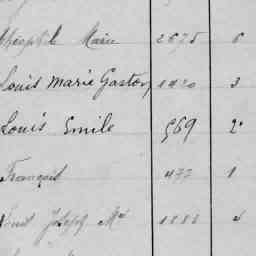 Marie 2675 6
Louis Marie Gaston 1420 3
Louis Emile 569 2
François 477 1
Joseph Mie 1888